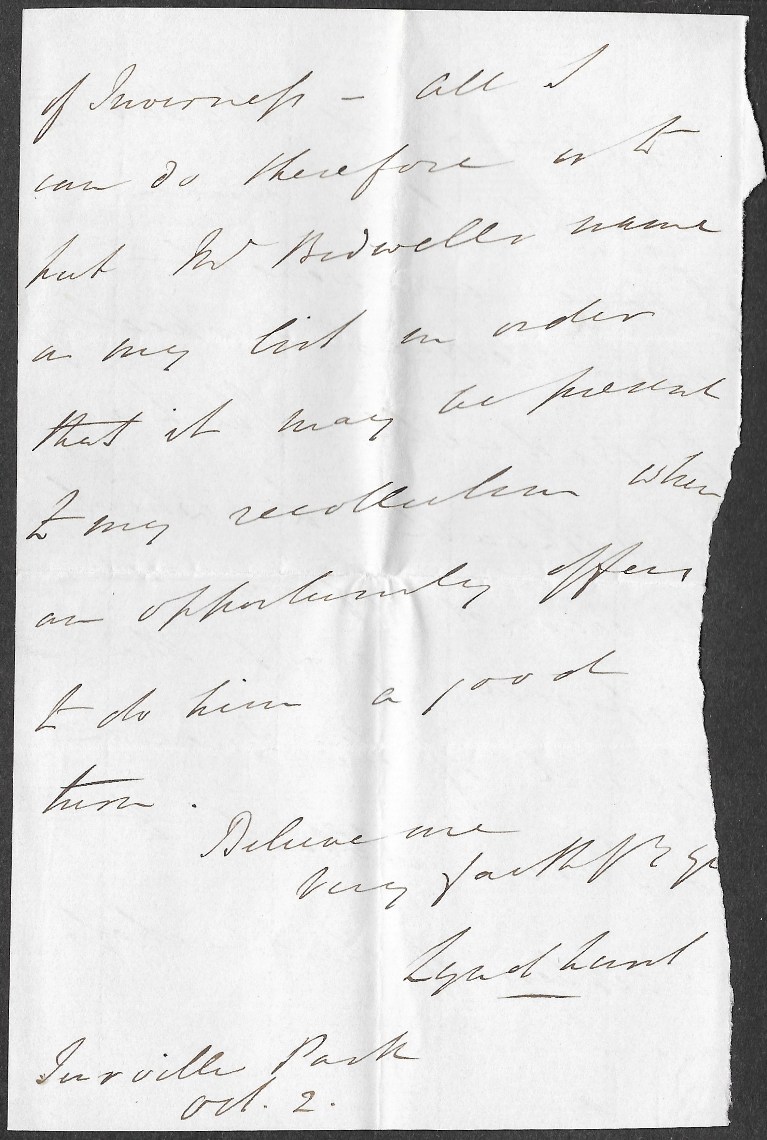 of Inverness – All I
can do therefore is to
put Mr Bidwells name
on my list in order
that it may be present
to my recollection when
an opportunity offers
to do him a good
turn.
Believe me
very faithfy yrs
Lyndhurst
Turville Park
Oct. 2.